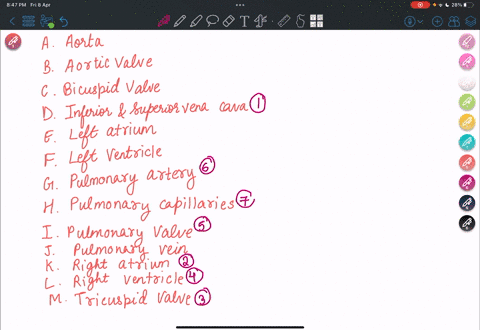 8:47 PM Fri 8 Apr
A. Aorta
B. Aortic Valve
C. Bicuspid Valve
D. Inferior & Superior vena cava ①
E. Left atrium
F. Left Ventricle
G. Pulmonary artery ⑥
H. Pulmonary capillaries ⑦
I. Pulmonary Valve ⑤
J. Pulmonary vein
K. Right atrium ②
L. Right ventricle ④
M. Tricuspid Valve ③